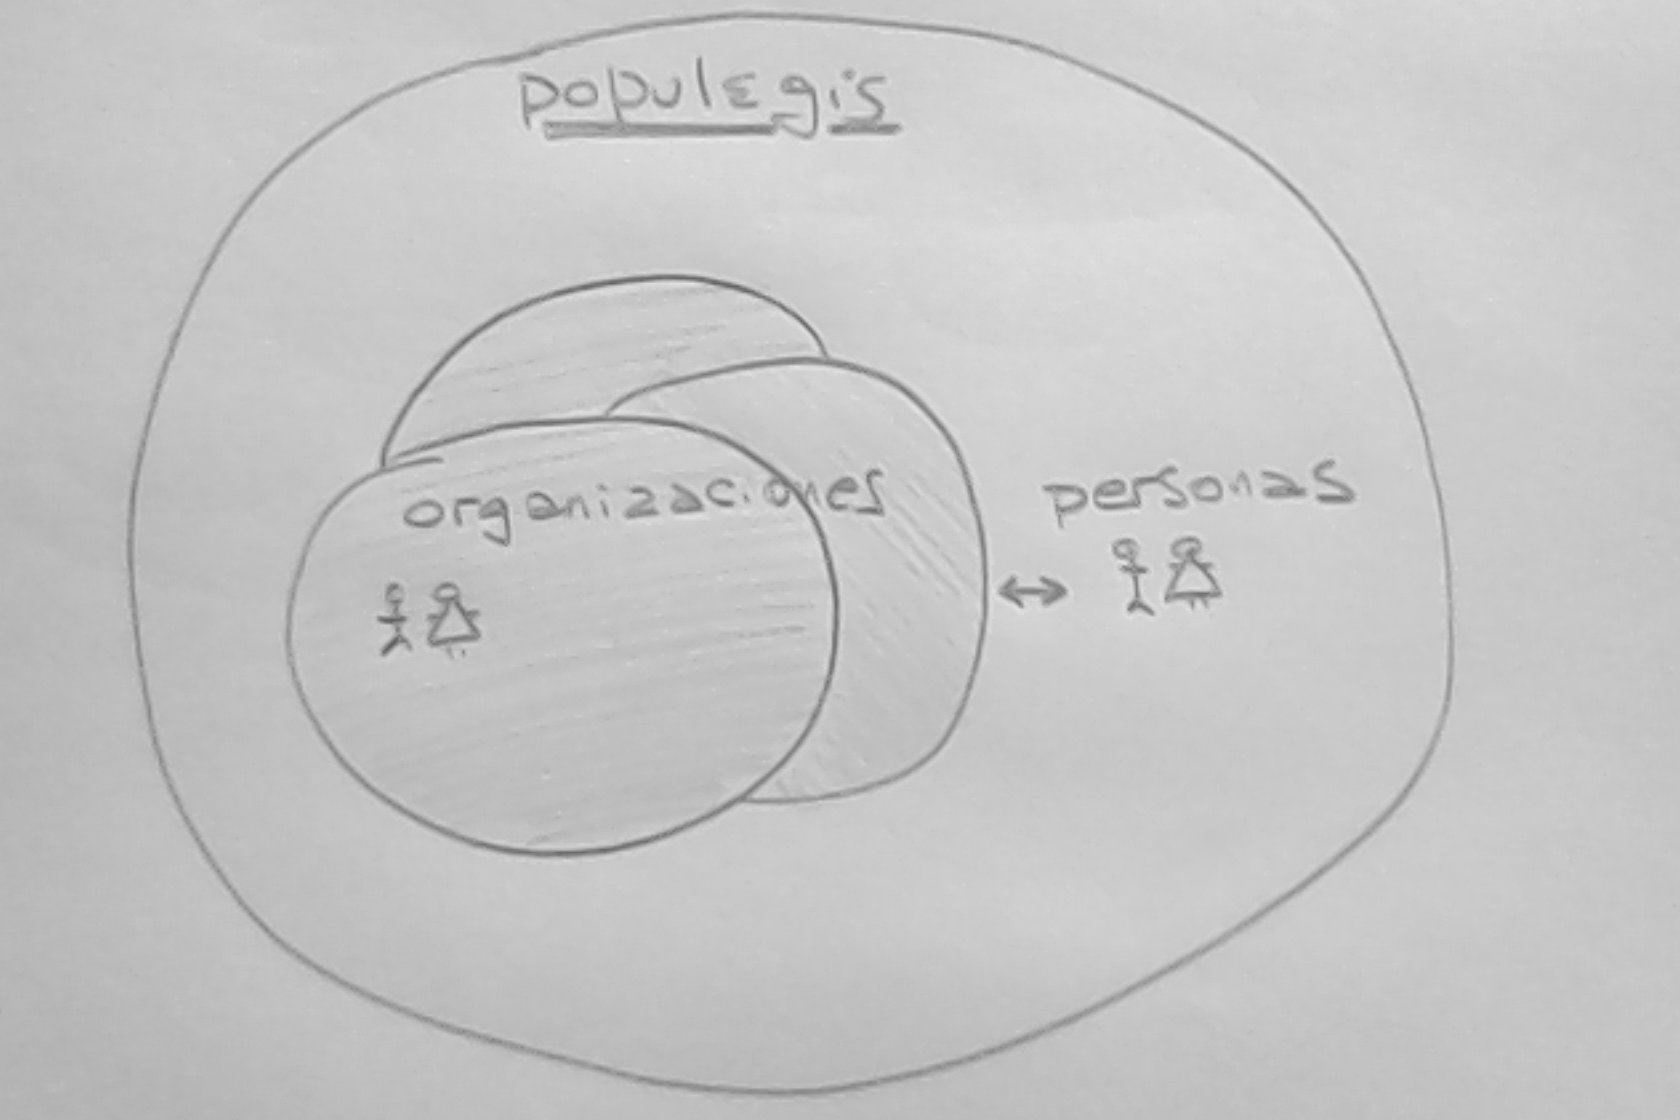 populegis
organizaciones
personas